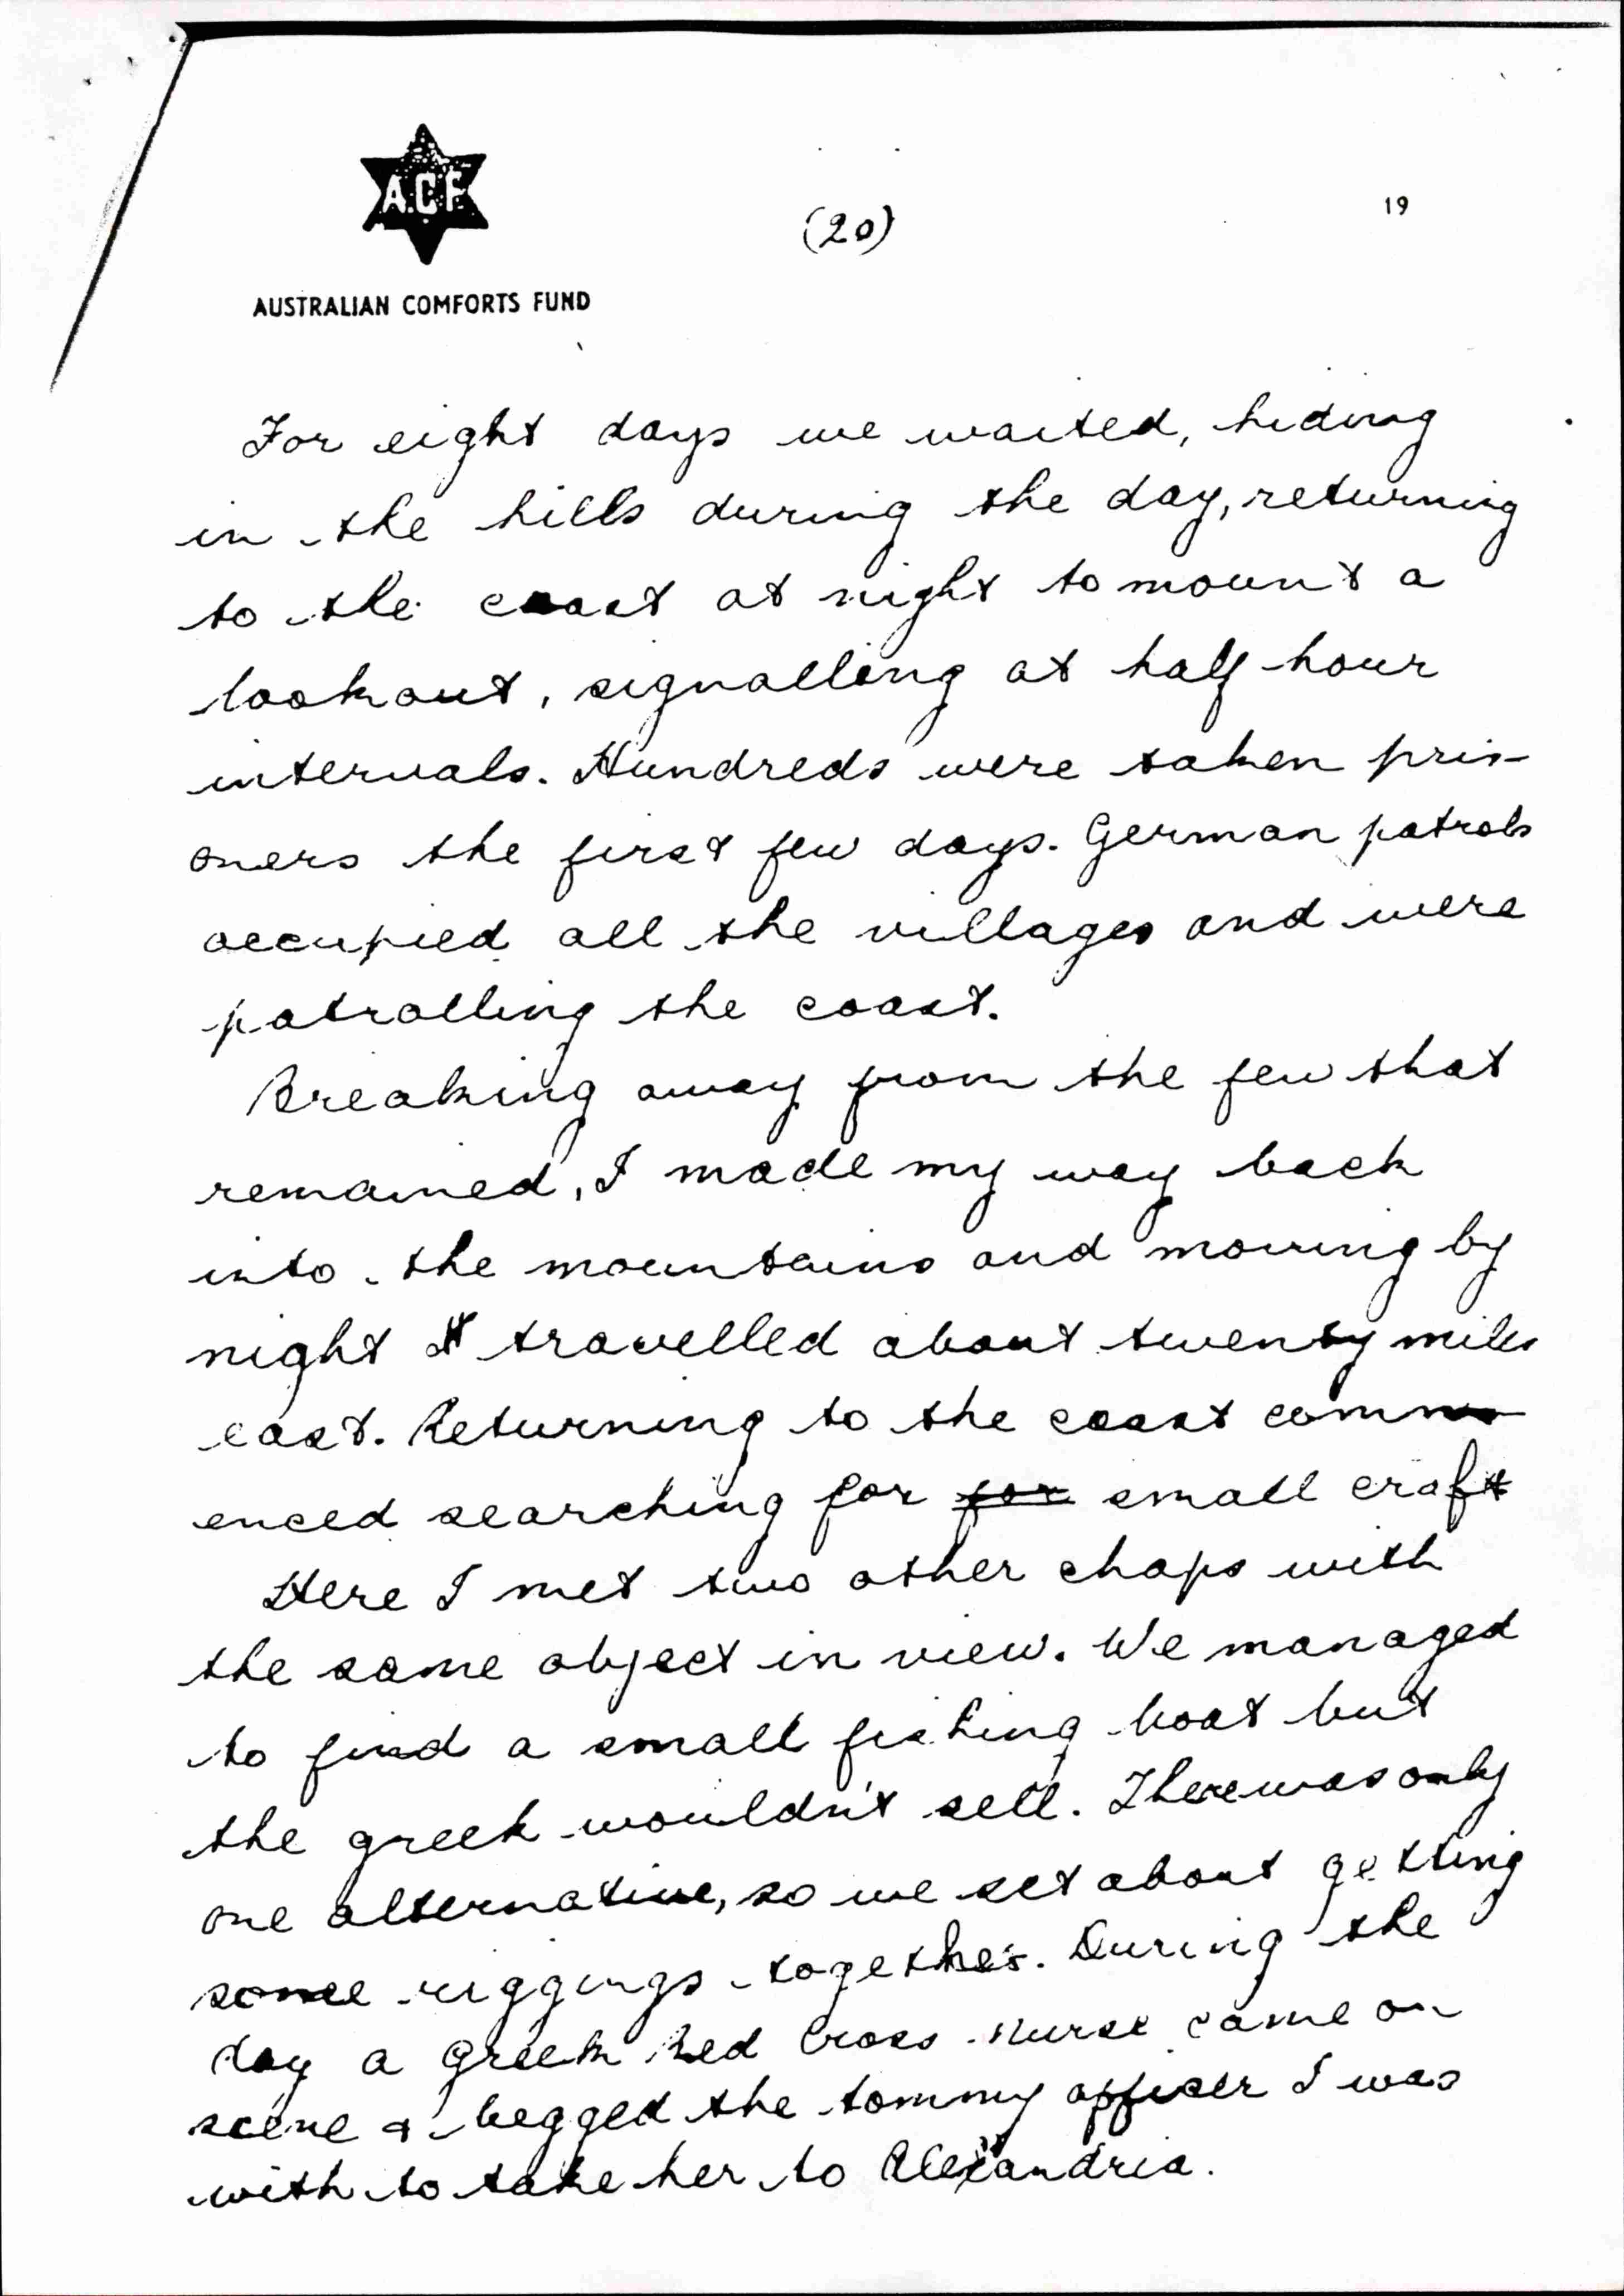 A.C.F.
(20)
19
AUSTRALIAN COMFORTS FUND
For eight days we waited, hiding
in the hills during the day, returning
to the coast at night to mount a
lookout, signalling at half-hour
intervals. Hundreds were taken pris-
oners the first few days. German patrols
occupied all the villages and were
patrolling the coast.
Breaking away from the few that
remained, I made my way back
into the mountains and moving by
night I travelled about twenty miles
east. Returning to the coast comm-
enced searching for for small craft
Here I met two other chaps with
the same object in view. We managed
to find a small fishing boat but
the greek wouldn't sell. There was only
one alternative, so we set about getting
some riggings together. During the
day a Greek Red Cross nurse came on
scene & begged the tommy officer I was
with to take her to Alexandria.